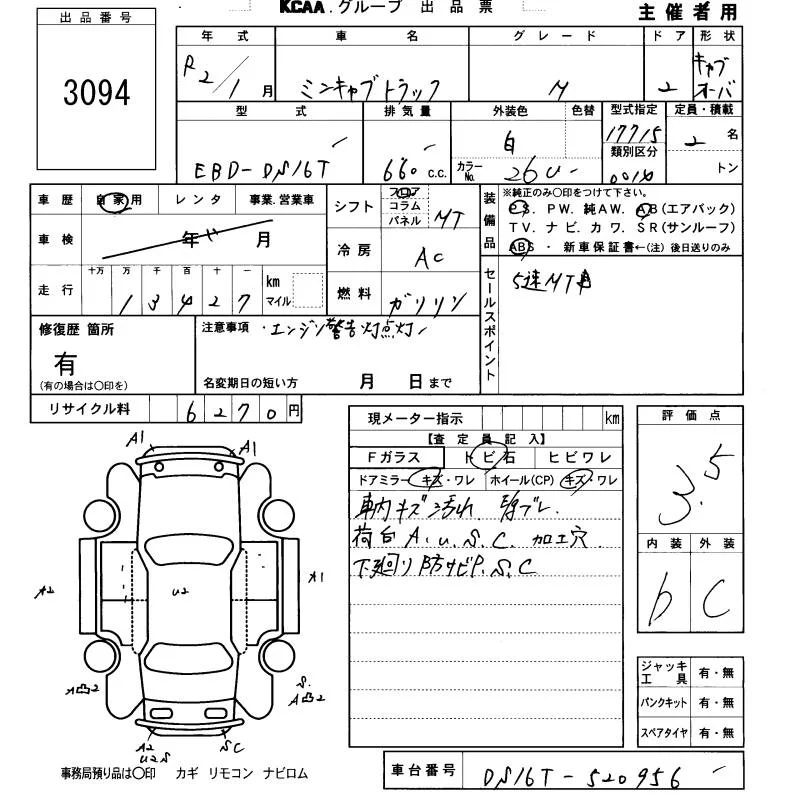 出品番号
3094
KCAA.グループ 出品票
主催者用
年式 車名 グレード ドア 形状
R2/1月 ミニキャブトラック M 2 キャブオーバ
型式 排気量 外装色 色替 型式指定 定員・積載
EBD-DS16T 660 c.c. 白 17715 2名
カラーNo. 26U 類別区分 トン
車歴 自家用 レンタ 事業.営業車
車検 年 月
走行 十万 万 千 百 十 一 km マイル
1 3 4 2 7
シフト フロア コラム パネル MT
冷房 AC
燃料 ガソリン
装備品 ※純正のみ○印をつけて下さい。
P.S. P.W. 純AW. A/B(エアバック)
TV. ナビ. カワ. SR(サンルーフ)
ABS・新車保証書←(注)後日送りのみ
セールスポイント
5速MT
修復歴 箇所
有
(有の場合は○印を)
注意事項 ・エンジン警告灯点灯
名変期日の短い方 月 日まで
リサイクル料 6 2 7 0 円
現メーター指示 km
【査定員記入】
Fガラス トビ石 ヒビワレ
ドアミラー キズ・ワレ ホイール(CP) キズ・ワレ
車内キズ汚れ
荷台A.U.S.C. 加工穴
下廻り防サビP.S.C
評価点
3.5
内装 外装
b C
ジャッキ工具 有・無
パンクキット 有・無
スペアタイヤ 有・無
A1 A1
A2 U2 A1
A凸2 S. A凸2
A2 U2S SC
事務局預り品は○印 カギ リモコン ナビロム
車台番号 DS16T-520956